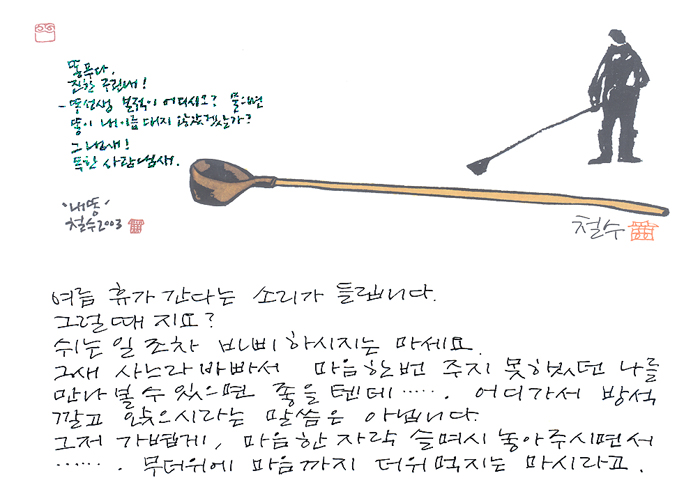 똥푸다.
진한 구린내!
- 똥선생 본적이 어디시오? 물으면
똥이 내이름 대지 않았겠는가?
그 냄새!
독한 사람냄새.
'내 똥'
철수2003
철수
여름 휴가 간다는 소리가 들립니다.
그럴 때 지요?
쉬는 일 조차 바삐 하시지는 마세요.
그새 사느라 바빠서 마음 한번 주지 못하였던 나를
만나 볼 수 있으면 좋을 텐데······. 어디가서 방석
깔고 앉으시라는 말씀은 아닙니다.
그저 가볍게, 마음 한 자락 슬며시 놓아주시면서
······. 무더위에 마음까지 더위먹지는 마시라고.